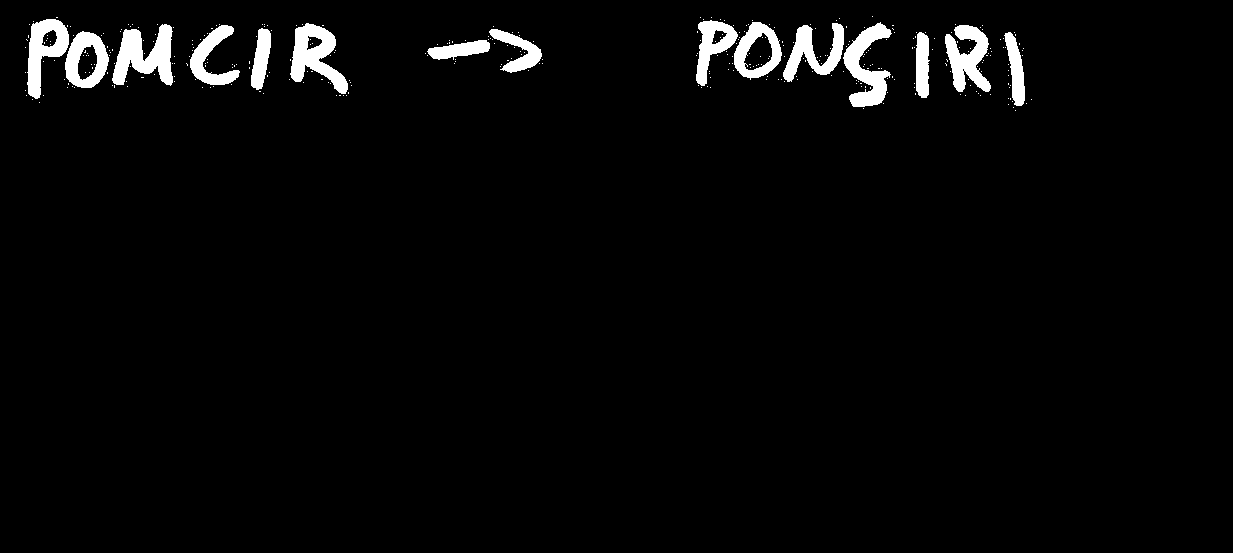 POMCIR -> PONÇIRI